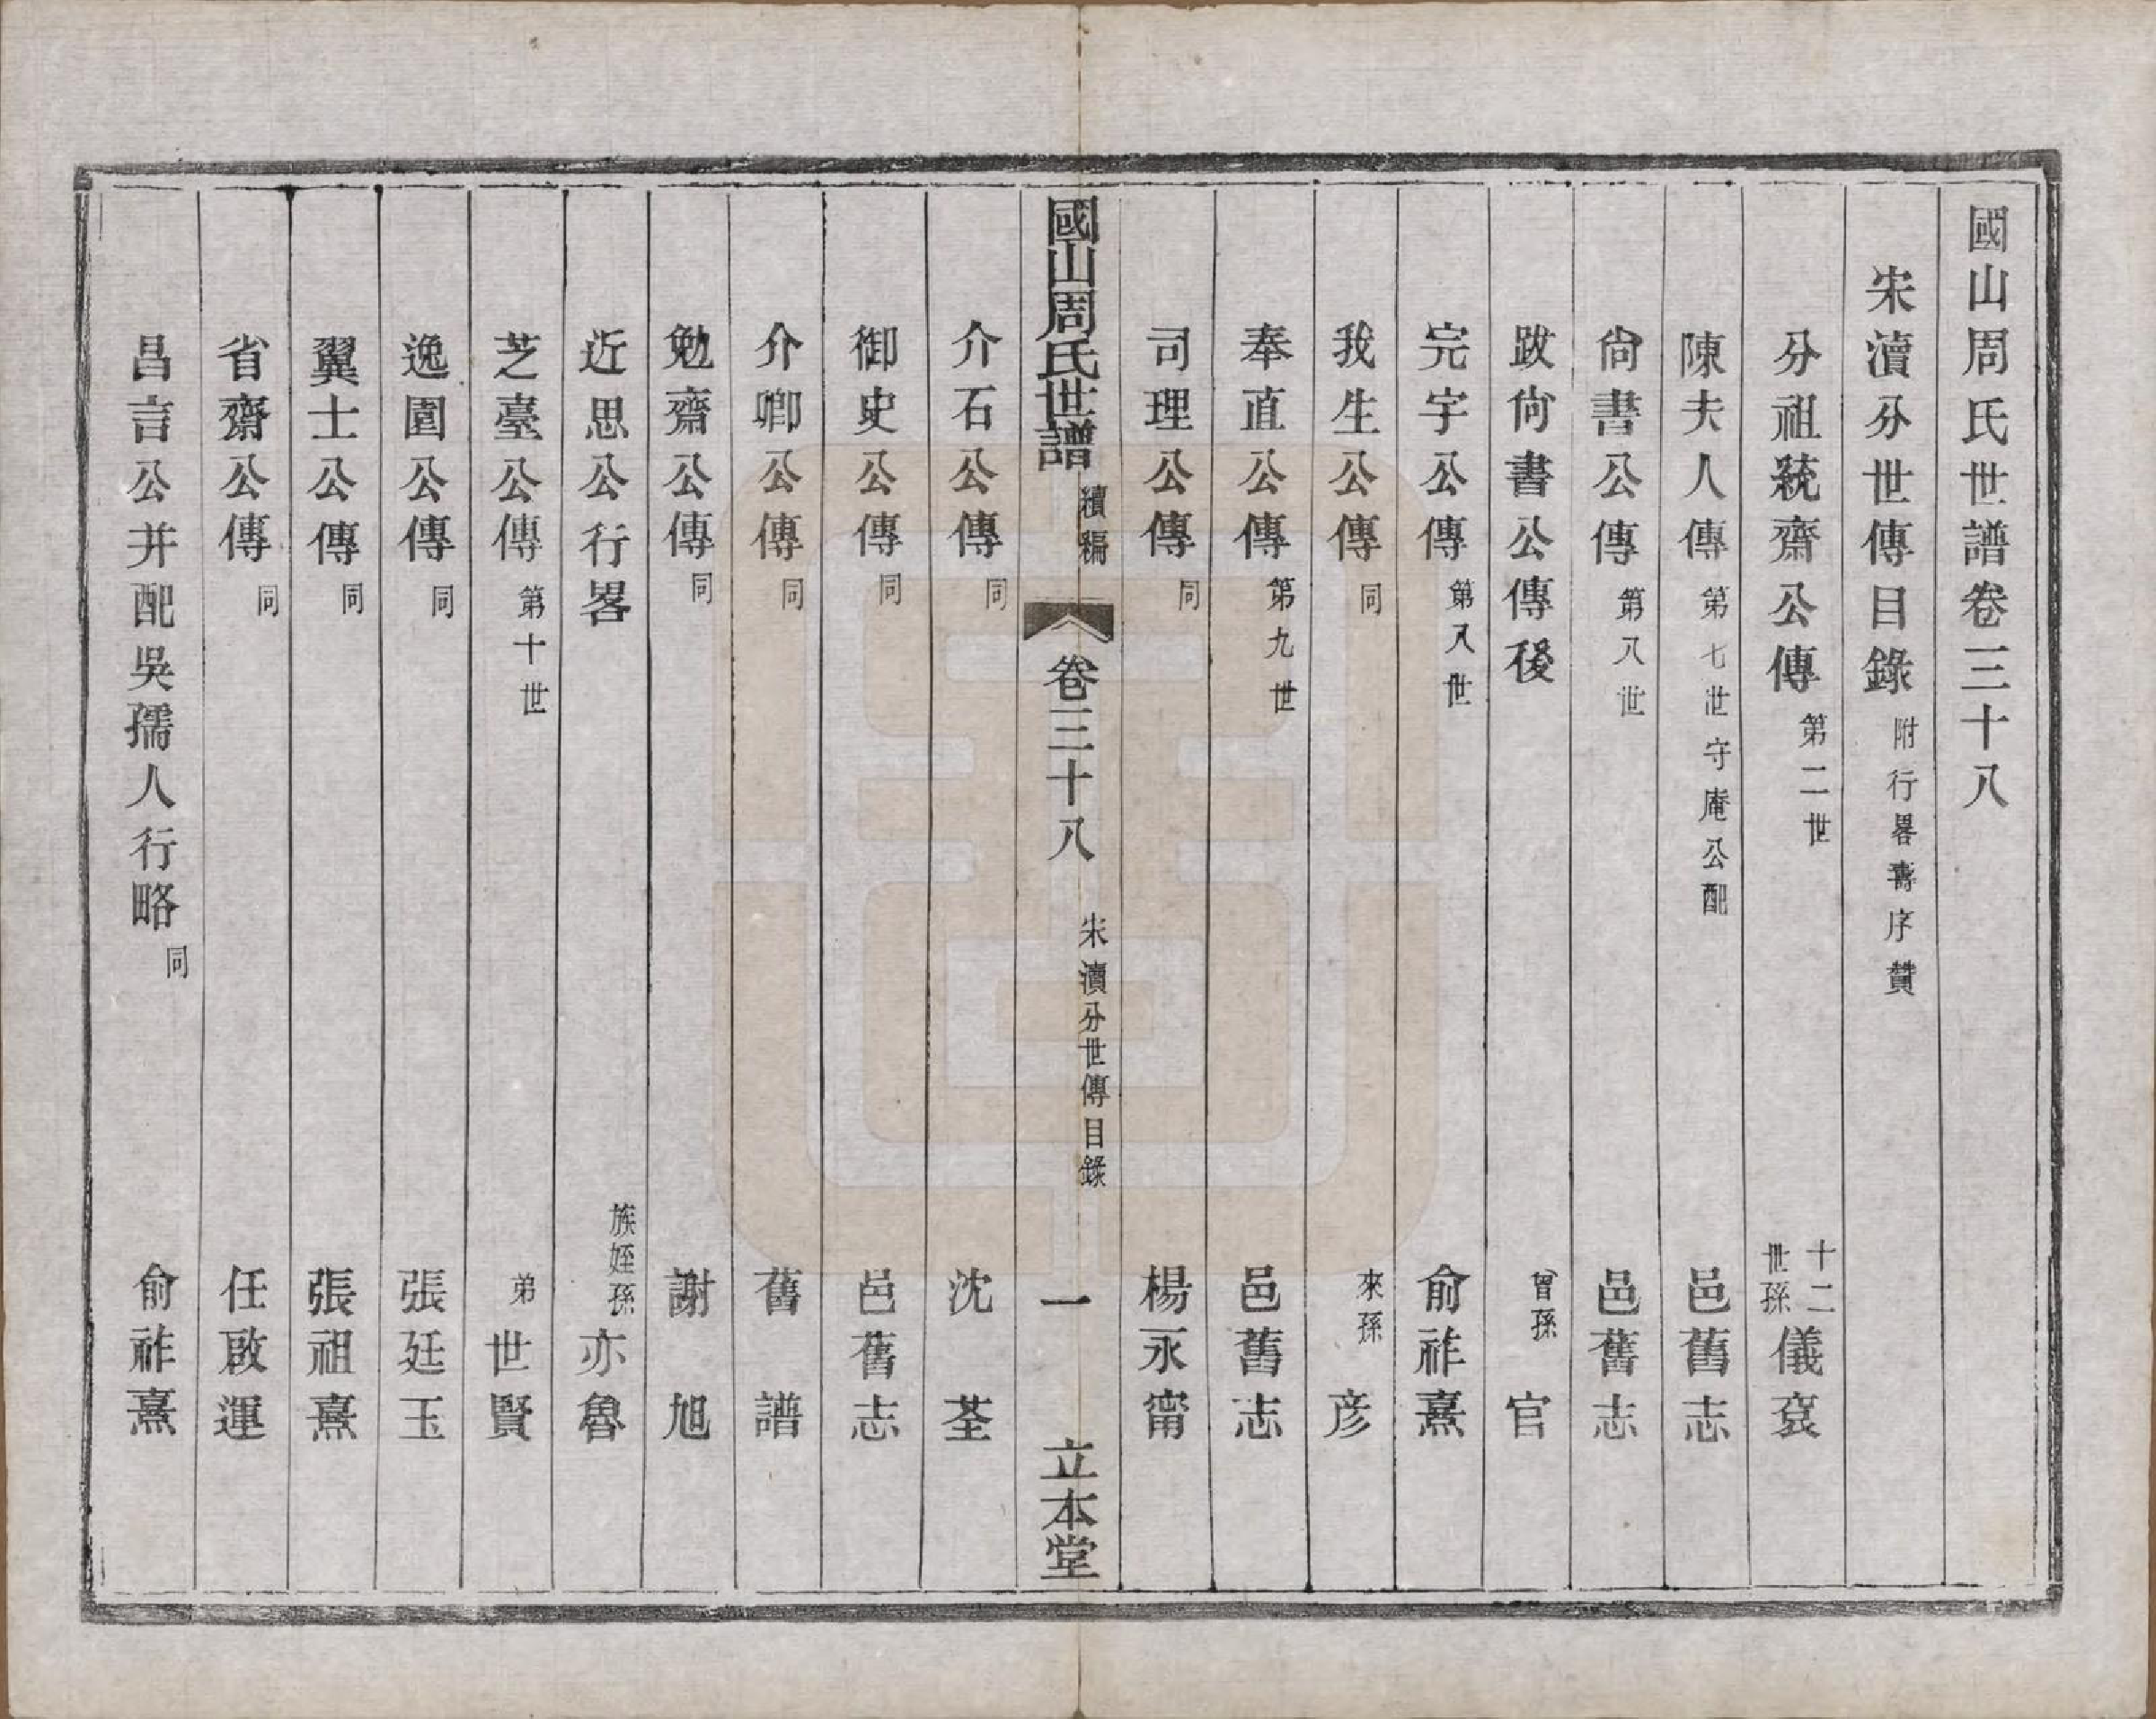 國山周氏世譜卷三十八
宋瀆分世傳目錄 附行畧壽序贊
分祖統齋公傳 第二世 十二世孫 儀袞
陳夫人傳 第七世守庵公配 邑舊志
尙書公傳 第八世 邑舊志
跋尙書公傳後 曾孫 官
完宇公傳 第八世 俞祚熹
我生公傳 同 來孫 彦
奉直公傳 第九世 邑舊志
司理公傳 同 楊永甯
國山周氏世譜 續編 卷三十八 宋瀆分世傳目錄 一 立本堂
介石公傳 同 沈荃
御史公傳 同 邑舊志
介卿公傳 同 舊譜
勉齋公傳 同 謝旭
近思公行畧 族姪孫 亦魯
芝臺公傳 第十世 弟 世賢
逸園公傳 同 張廷玉
翼士公傳 同 張祖熹
省齋公傳 同 任啟運
昌言公并配吳孺人行略 同 俞祚熹